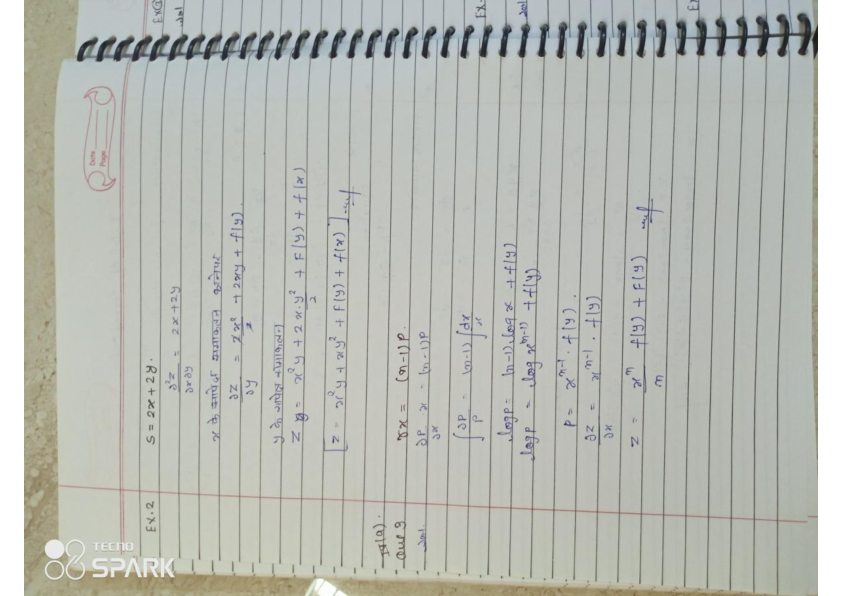 Date
Page
Ex.2 S = 2x + 2y.
∂²z/∂x∂y = 2x + 2y
x के सापेक्ष समाकलन करनेपर
∂z/∂y = 2x²/2 + 2xy + f(y).
y के सापेक्ष समाकलन
z = x²y + 2x·y²/2 + F(y) + f(x)
z = x²y + xy² + F(y) + f(x)
IV(a).
Que 9 rx = (n-1)P.
Sol. ∂P/∂x x = (n-1)P
∫∂P/P = (n-1)∫dx/x
log P = (n-1) log x + f(y)
log P = log x^(n-1) + f(y)
P = x^(n-1) · f(y).
∂z/∂x = x^(n-1) · f(y)
z = x^n/n f(y) + F(y)
TECNO
SPARK